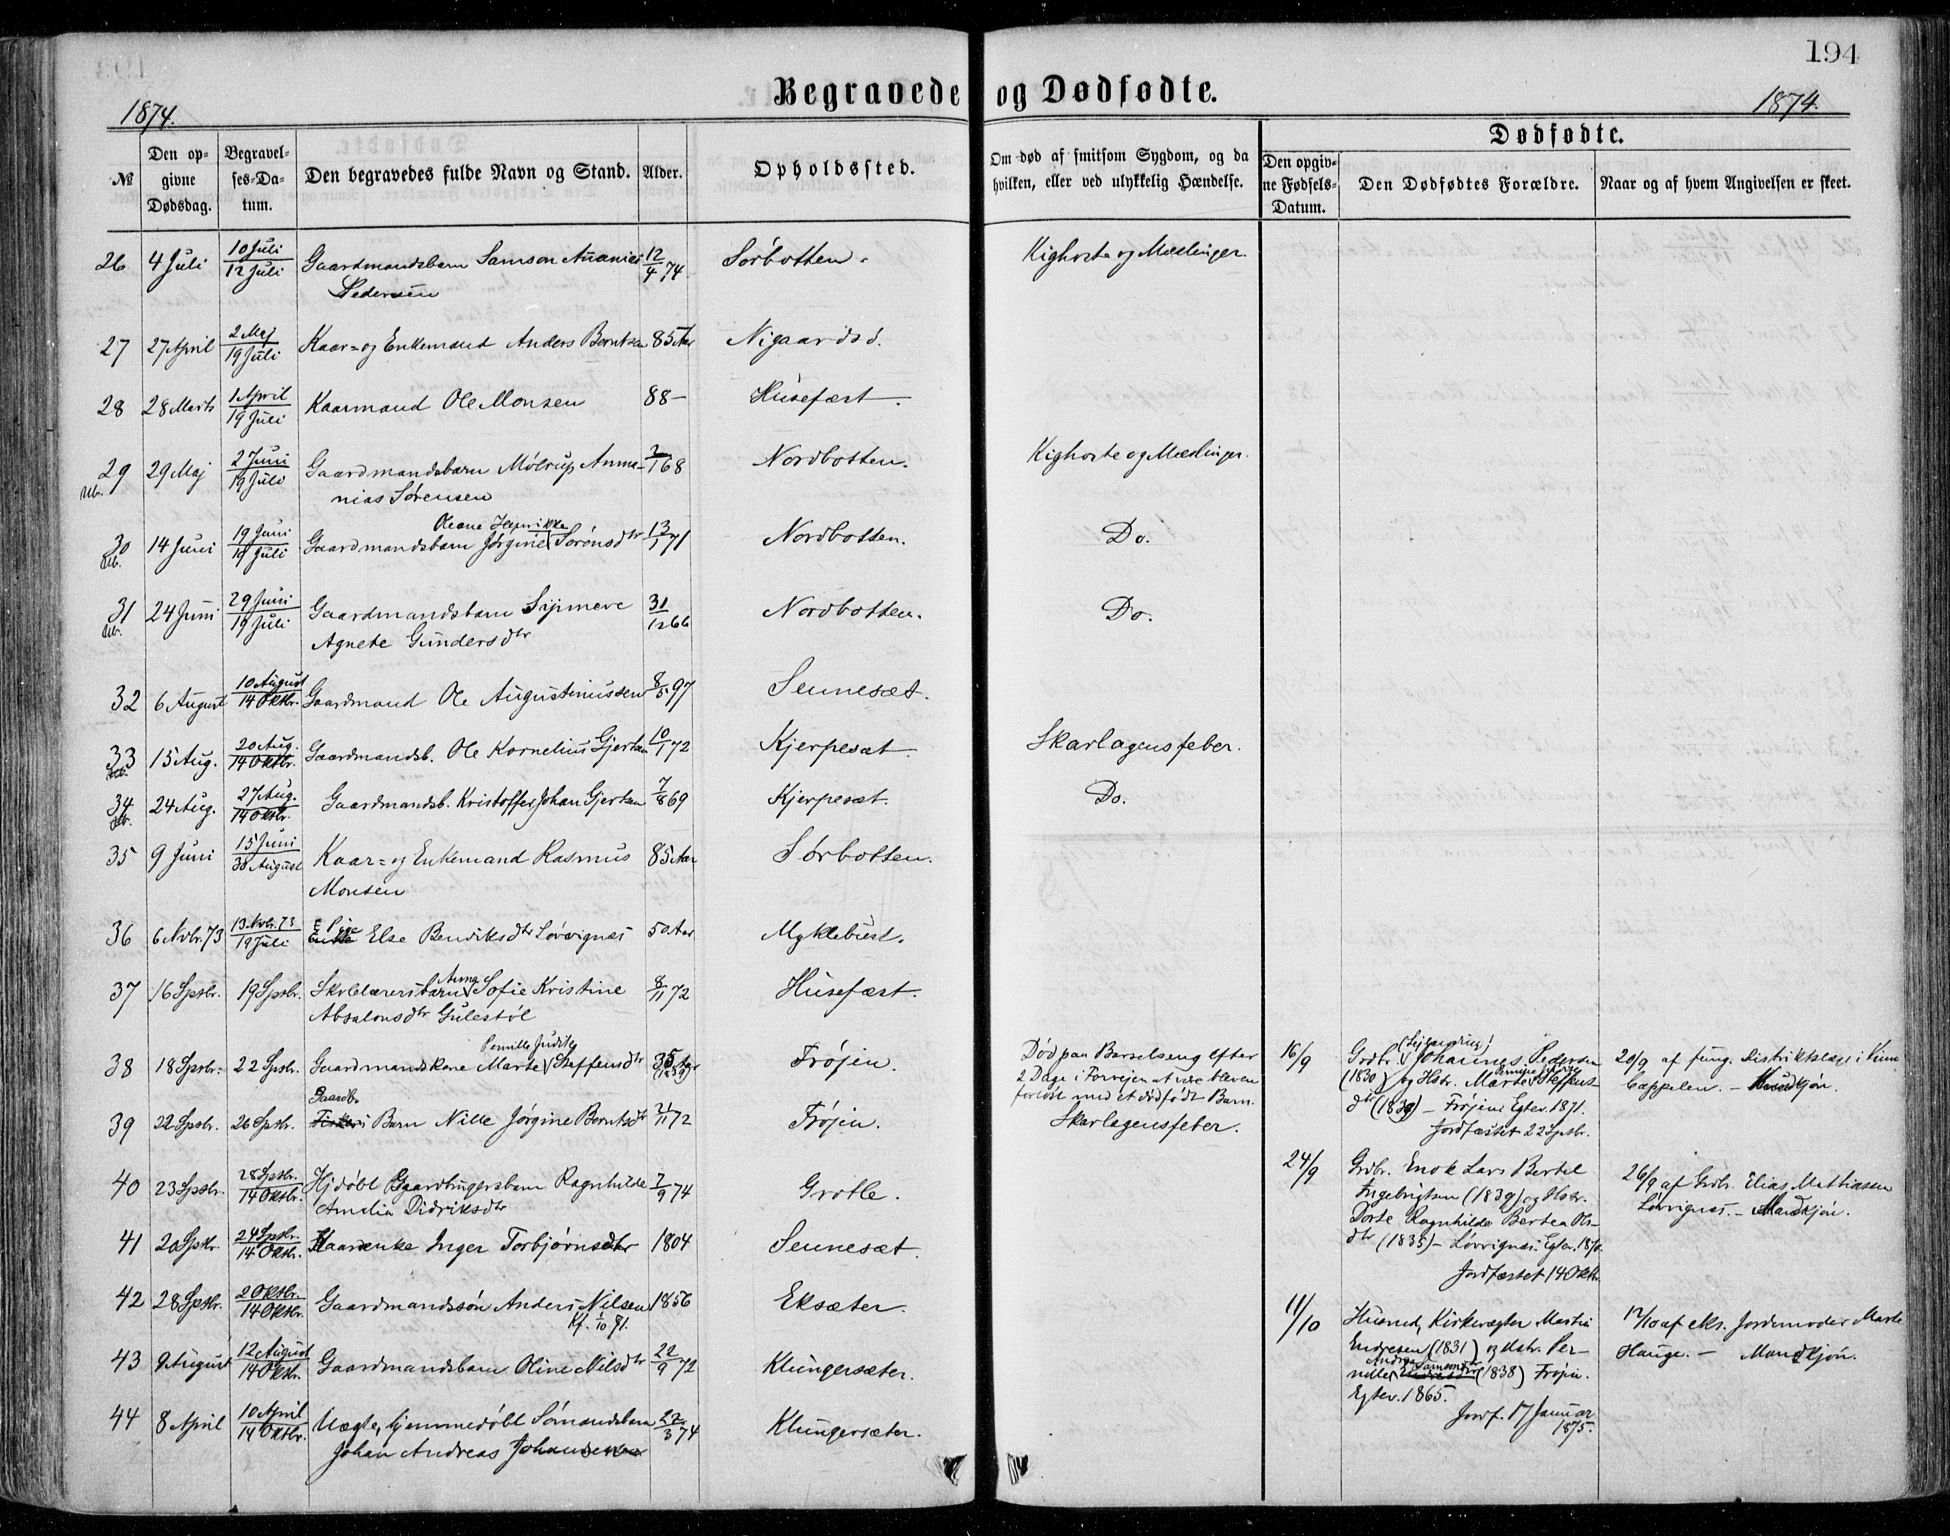 194
Begravede og Dødfødte.
1874. 1874.
№
Den opgivne Dødsdag.
Begravelses-Datum.
Den begravedes fulde Navn og Stand.
Alder.
Opholdssted.
Om død af smitsom Sygdom, og da hvilken, eller ved ulykkelig Hændelse.
Dødfødte.
Den opgivne Fødsels-Datum.
Den Dødfødtes Forældre.
Naar og af hvem Angivelsen er skeet.
26 4 Juli 10 Juli 12 Juli Gaardmandsbarn Samson Ananias 12/4 74 Sørbotten. Kighoste og Mæslinger.
Pedersen
27 27 April 2 Maj 19 Juli Kaar- og Enkemand Anders Berntsen 85 Aar Nigaardsø.
28 28 Marts 1 April 19 Juli Kaarmand Ole Monsen 88 — Husefæst.
29 29 Maj 2 Juni 19 Juli Gaardmandsbarn Moltrup Anna- 168 Nordbotten. Kighoste og Mæslinger.
nias Sørensen
Oleane Henrikke
30 14 Juni 19 Juni 19 Juli Gaardmandsbarn Jørgine Sørensdtr 13/1 71 Nordbotten. Do.
31 24 Juni 29 Juni 19 Juli Gaardmandsbarn Synneve 31/12 66 Nordbotten. Do.
Agnete Gundersdtr
32 6 August 10 August 14 Oktbr. Gaardmand Ole Augustinussen 8/5 97 Sennesæt.
33 15 Aug. 20 Aug. 14 Oktbr. Gaardmandsb. Ole Kornelius Gjertsen 10/1 72 Kjerpesæt Skarlagensfeber.
34 24 Aug. 27 Aug. 14 Oktbr. Gaardmandsb. Kristoffer Johan Gjertsen 7/8 69 Kjerpesæt. Do.
35 9 Juni 15 Juni 30 August Kaar- og Enkemand Rasmus 85 Aar Sørbotten.
Monsen
36 6 Nvbr. 73 13 Nvbr. 73 19 Juli Pige Enke Else Bendiksdtr Løvrignæs 50 Aar Myklebust.
37 16 Sptbr. 19 Sptbr. Skolelærersbarn Anna Sofie Kristine 8/11 72 Husefæst.
Absalonsdtr Gulestøl
Pernille Judite
38 18 Sptbr. 22 Sptbr. Gaardmandskone Marte Steffensdtr 35 Aar Frøjen. Død paa Barselseng efter
2 Dage i Forvejen at være bleven
forløst med et dødfødt Barn.
39 22 Sptbr. 26 Sptbr. Gaardbr. Fiskers Barn Nille Jørgine Berntsdtr 72 Frøjen. Skarlagensfeber.
40 23 Sptbr. 28 Sptbr. 14 Oktbr. Hjdøbt Gaardbrugersbarn Ragnhilde 7/9 74 Grotle.
Amelia Didriksdtr
41 20 Sptbr. 24 Sptbr. 14 Oktbr. Kaarenke Inger Torbjørnsdtr 1804 Sennesæt.
42 28 Sptbr. 2 Oktbr. 14 Oktbr. Gaardmandssøn Anders Nilsen 1856 Eksæter.
Kf. 1/10 71.
43 9 August 12 August 14 Oktbr. Gaardmandsbarn Oline Nilsdtr 22/9 72 Klungersæter.
44 8 April 10 April 14 Oktbr. Uægte, hjemmedøbt Sømandsbarn 27/3 74 Klungersæter.
Johan Andreas Johansen
16/9 Grdbr. Johannes Pedersen
(1830) og Hstr. Marte Steffens-
dtr (1839) — Frøjen. Egtev. 1871.
Jordfæstet 22 Sptbr.
20/9 af fung. Distriktslæge i Kinn
Cappelen. — Mandkjøn.
24/9 Grdbr. Enok Lars Bertel
Ingebrigtsen (1839) og Hstr.
Dorte Ragnhilde Bertea Ols-
dtr (1835) — Løvrignæs. Egtev. 1870.
Jordfæstet 14 Oktbr.
26/9 af Grdbr. Elias Mathiassen
Løvrignæs. — Mandkjøn.
11/10 Husmd., Kirkevægter Martin
Endresen (1831) og Hstr. Per-
nille Andrea Samsonsdtr (1838) Frøjen.
Egtev. 1865.
Jordf. 17 Januar
1875.
17/10 af eks. Jordemoder Marte
Hauge. — Mandkjøn.